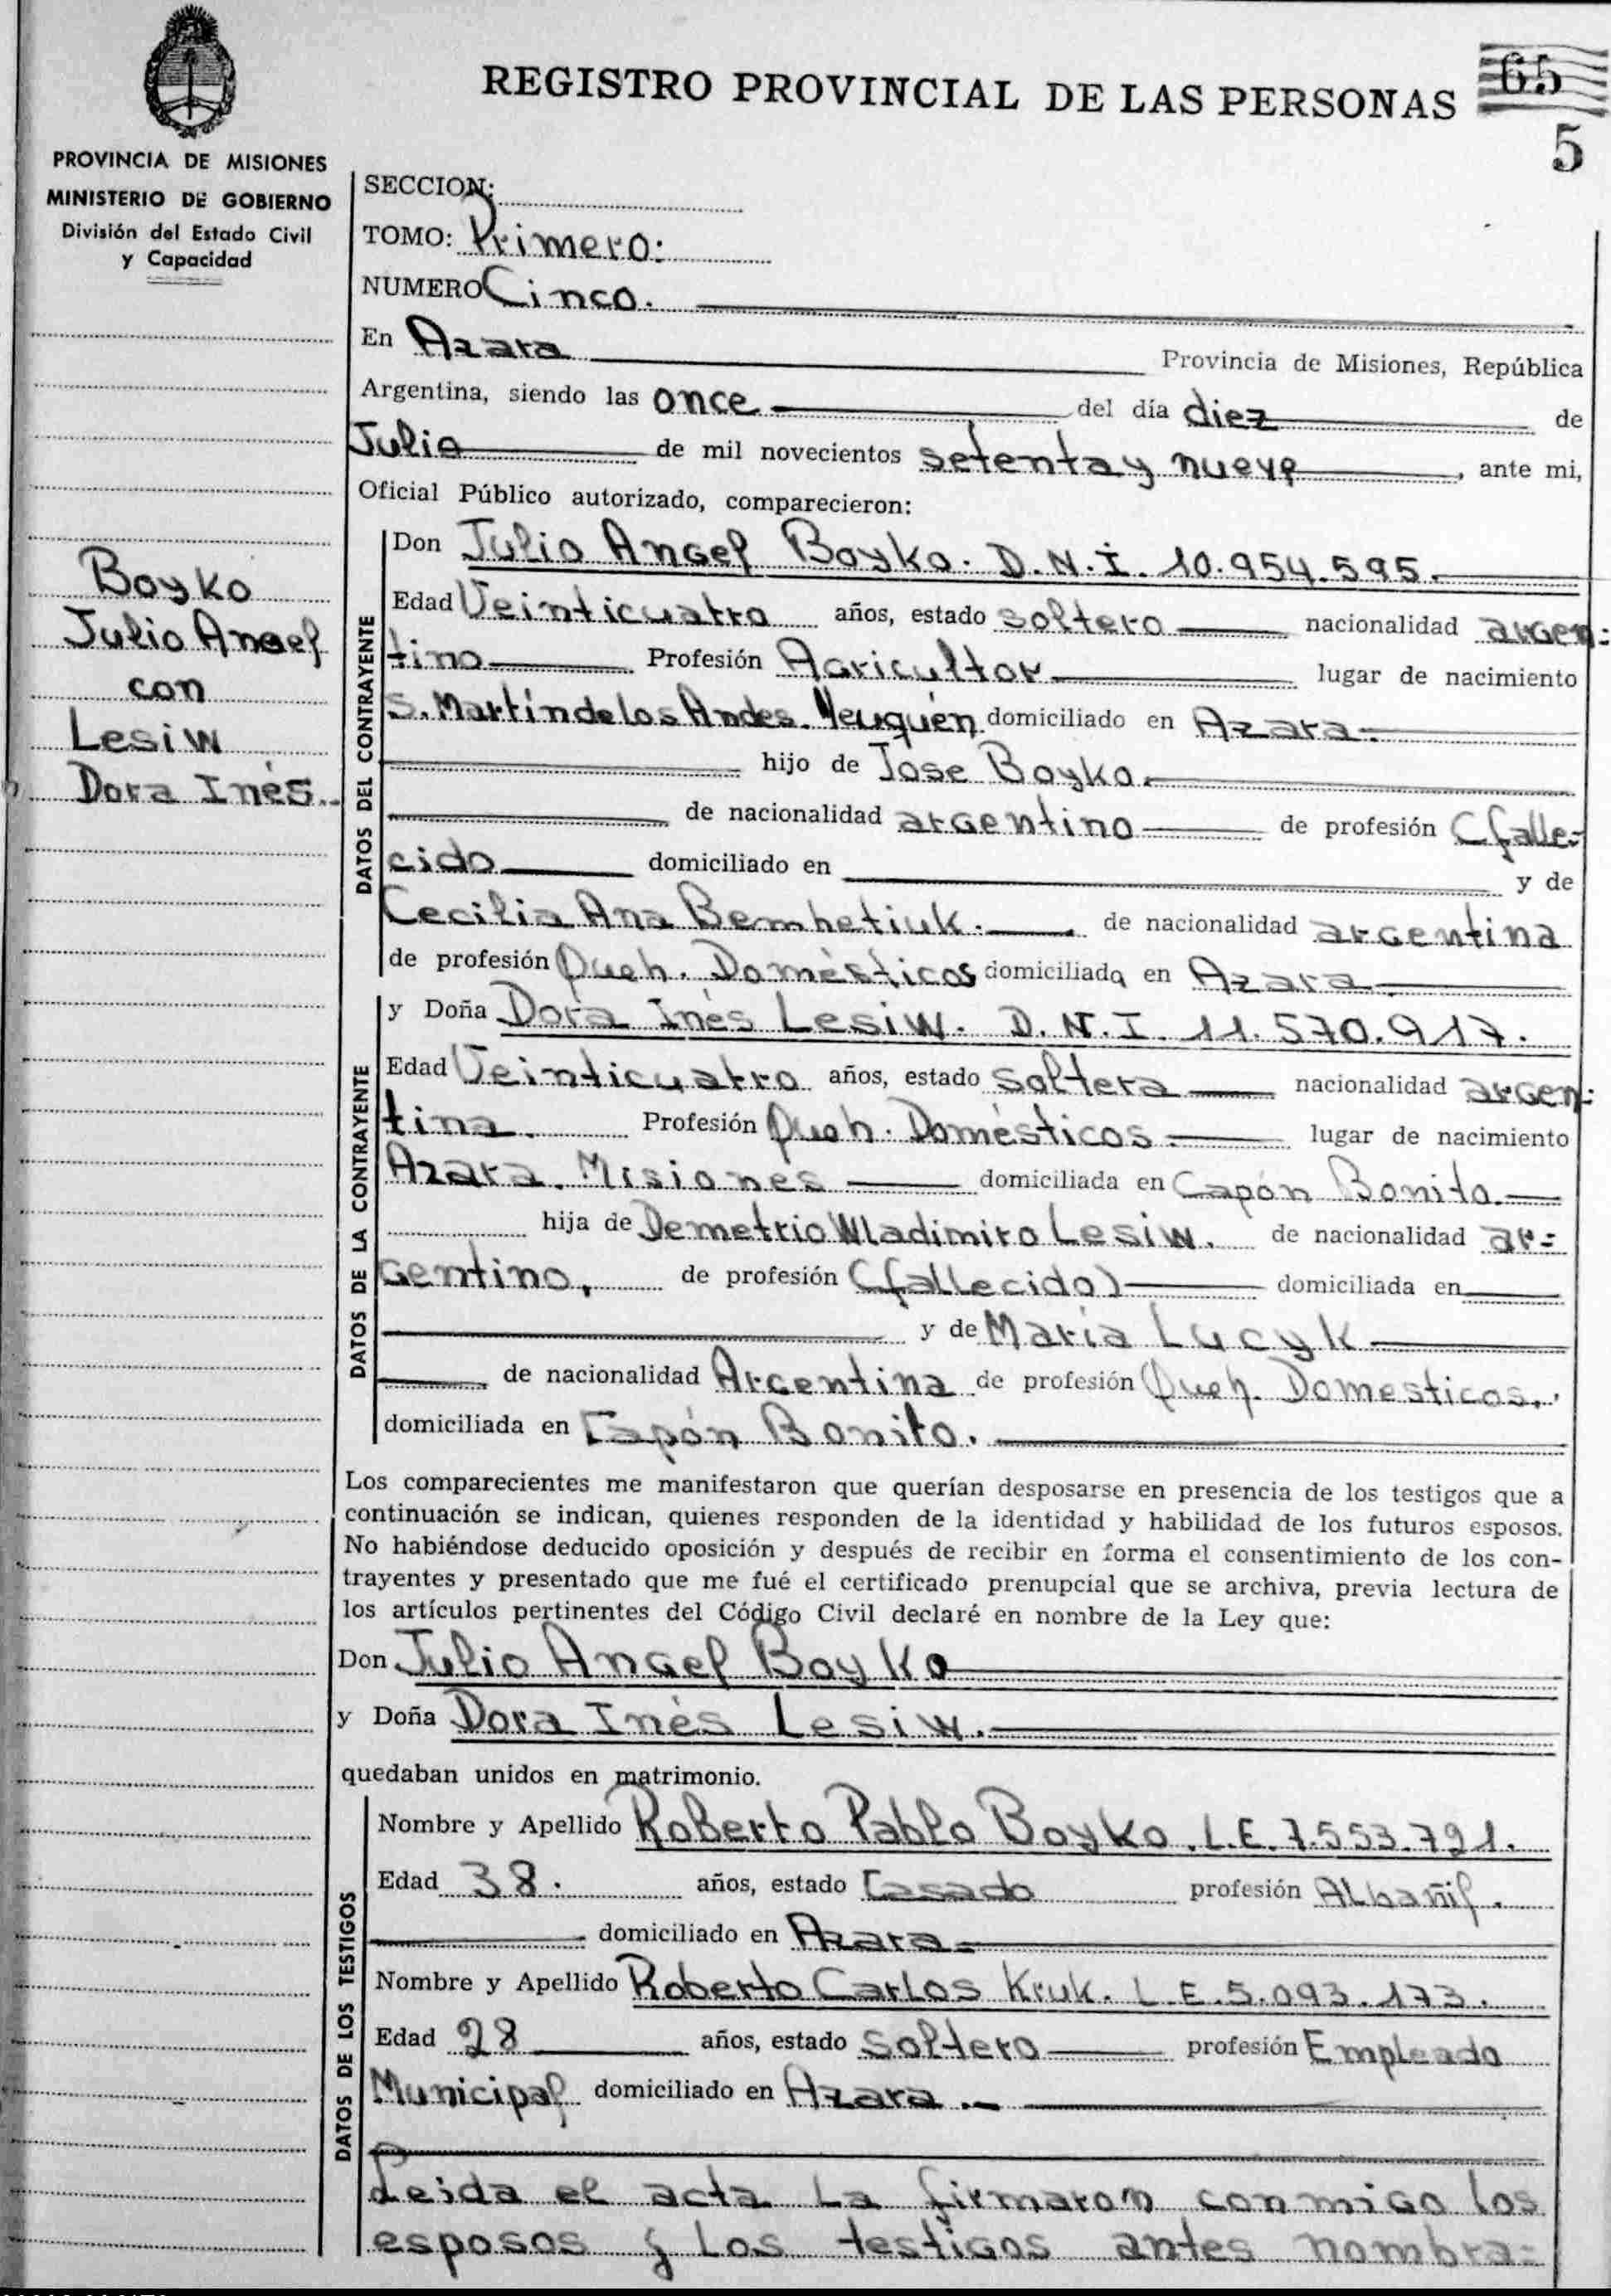 REGISTRO PROVINCIAL DE LAS PERSONAS
65
5
PROVINCIA DE MISIONES
MINISTERIO DE GOBIERNO
División del Estado Civil
y Capacidad
Boyko
Julio Angel
con
Lesiw
Dora Inés.
SECCION:
TOMO: Primero:
NUMERO Cinco.
En Azara Provincia de Misiones, República
Argentina, siendo las once del día diez de
Julio de mil novecientos setenta y nueve, ante mi,
Oficial Público autorizado, comparecieron:
DATOS DEL CONTRAYENTE
Don Julio Angel Boyko. D.N.I. 10.954.595.
Edad Veinticuatro años, estado soltero nacionalidad argen:
tino Profesión Agricultor lugar de nacimiento
S. Martin de los Andes. Neuquén domiciliado en Azara.
hijo de Jose Boyko.
de nacionalidad argentino de profesión (falle=
cido domiciliado en y de
Cecilia Ana Bemhetiuk. de nacionalidad argentina
de profesión Queh. Domésticos domiciliada en Azara.
DATOS DE LA CONTRAYENTE
y Doña Dora Inés Lesiw. D.N.I. 11.570.917.
Edad Veinticuatro años, estado soltera nacionalidad argen:
tina. Profesión Queh. Domésticos. lugar de nacimiento
Azara. Misiones domiciliada en Capón Bonito.
hija de Demetrio Wladimiro Lesiw. de nacionalidad ar=
gentino, de profesión (fallecido) domiciliada en
y de María Lucyk
de nacionalidad Argentina de profesión Queh. Domesticos.
domiciliada en Capón Bonito.
Los comparecientes me manifestaron que querían desposarse en presencia de los testigos que a
continuación se indican, quienes responden de la identidad y habilidad de los futuros esposos.
No habiéndose deducido oposición y después de recibir en forma el consentimiento de los con-
trayentes y presentado que me fué el certificado prenupcial que se archiva, previa lectura de
los artículos pertinentes del Código Civil declaré en nombre de la Ley que:
Don Julio Angel Boyko
y Doña Dora Inés Lesiw.
quedaban unidos en matrimonio.
DATOS DE LOS TESTIGOS
Nombre y Apellido Roberto Pablo Boyko. L.E. 7.553.791.
Edad 38. años, estado Casado profesión Albañil.
domiciliado en Azara.
Nombre y Apellido Roberto Carlos Kruk. L.E. 5.093.173.
Edad 28 años, estado soltero profesión Empleado
Municipal domiciliado en Azara.
Leida el acta la firmaron conmigo los
esposos y los testigos antes nombra=